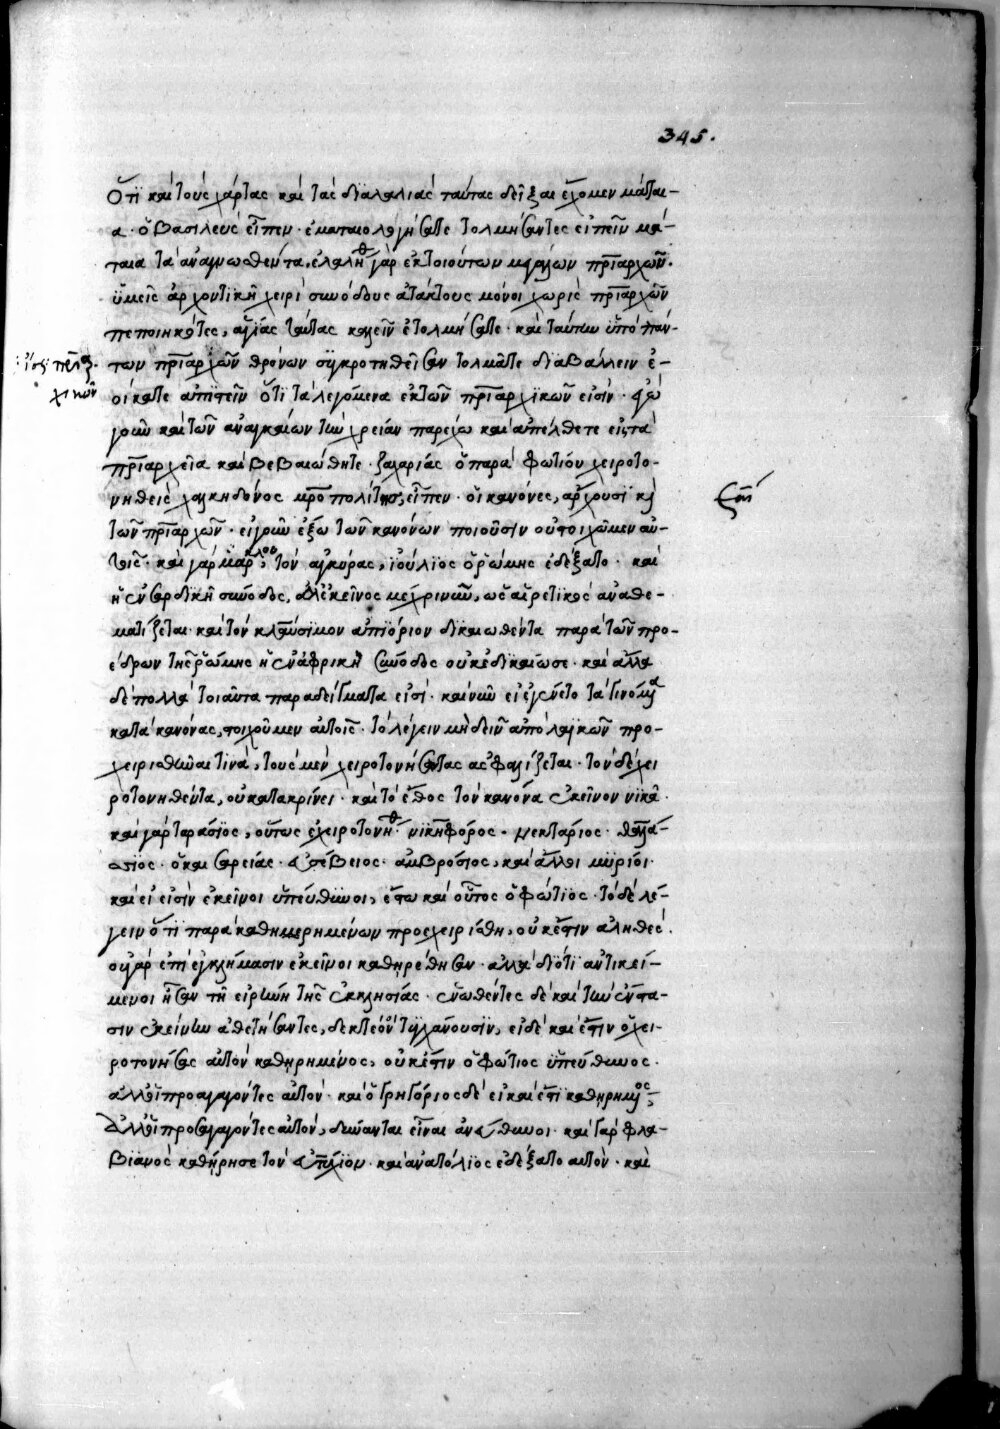 345.
Ὅτι καὶ τοὺς χάρτας καὶ τὰς διαλαλιὰς ταύτας δεῖξαι ἔχομεν μάται-
α· ὁ βασιλεὺς εἶπεν· ἐματαιολογήσατε τολμήσαντες εἰπεῖν μά-
ταια τὰ ἀναγνωσθέντα. ἐλαλήθ γὰρ ἐκ τοιούτων μεγάλων πριαρχῶν.
ὑμεῖς ἀρχοντικῆ χειρὶ συνόδους ἀτάκτους μόνοι χωρὶς πριαρχῶν
πεποιηκότες, ἁγίας ταύτας καλεῖν ἐτολμήσατε· καὶ ταύτην ὑπὸ πάν-
των πριαρχῶν θρόνων συγκροτηθεῖσαν τολμᾶτε διαβάλλειν ἐ-
οίκατε ἀπιστεῖν ὅτι τὰ λεγόμενα ἐκ τῶν πριαρχικῶν εἰσίν· ἐγὼ
γοῦν καὶ τῶν ἀναγκαίων τὴν χρείαν παρέχω καὶ ἀπέλθετε εἰς τὰ
πριαρχεῖα καὶ βεβαιώθητε· ζαχαρίας ὁ παρὰ φωτίου χειροτο-
νηθεὶς χαλκηδόνος μροπολίτης, εἶπεν· οἱ κανόνες, ἄρχουσι κὶ
τῶν πριαρχῶν· εἰ γοῦν ἔξω τῶν κανόνων ποιοῦσιν οὐ στοιχοῦμεν αὐ-
τοῖς· καὶ γὰρ μάρκελον τὸν ἀγκύρας, ἰούλιος ὁ ῥώμης ἐδέξατο· καὶ
ἡ ἐν σαρδικῆ σύνοδος, ἀλλ' ἐκεῖνος μέχρι νῦν, ὡς αἱρετικὸς ἀναθε-
ματίζεται· καὶ τὸν ἀπιάριον δικαιωθέντα παρὰ τῶν προ-
έδρων τῆς ῥώμης ἡ ἐν ἀφρικῆ σύνοδος οὐκ ἐδικαίωσε· καὶ ἄλλα
δὲ πολλὰ τοιαῦτα παραδείγματα εἰσί· καὶ νῦν εἰ ἐγένετο τὰ γινόμενα
κατὰ κανόνας, στοιχοῦμεν αὐτοῖς· τὸ λέγειν μὴ δεῖν ἀπὸ λαϊκῶν προ-
χειρισθῆναι τινὰ, τοὺς μὲν χειροτονήσαντας ἀσφαλίζεται· τὸν δὲ χει
ροτονηθέντα, οὐ κατακρίνει· καὶ τὸ ἔθος τὸν κανόνα ἐκεῖνον νικᾶ·
καὶ γὰρ ταράσιος, οὕτως ἐχειροτονήθ· νικηφόρος· νεκτάριος· θαλά-
σσιος· ὁ καισαρείας· εὐσέβειος· ἀμβρόσιος, καὶ ἄλλοι μύριοι·
καὶ εἰ εἰσὶν ἐκεῖνοι ὑπεύθυνοι, ἔστω καὶ οὗτος ὁ φώτιος· τὸ δὲ λέ-
γειν ὅτι παρὰ καθηρημένων προεχειρίσθη, οὐκ ἔστιν ἀληθές.
οὐ γὰρ ἐπὶ ἐγκλήμασιν ἐκεῖνοι καθηρέθησαν· ἀλλὰ διότι ἀντικεί-
μενοι ἦσαν τῆ εἰρήνη τῆς ἐκκλησίας· ἑνωθέντες δὲ καὶ τὴν ἔνστα-
σιν ἐκείνην ἀθετήσαντες, δεκτέοι τυγχάνουσιν, εἰ δὲ καὶ ἔστιν ὁ χει-
ροτονήσας αὐτὸν καθηρημένος, οὐκ ἔστιν ὁ φώτιος ὑπεύθυνος·
ἀλλ' οἱ προαγαγόντες αὐτόν· καὶ ὁ γρηγόριος δὲ εἰ καὶ ἔστι καθηρημένος,
ἀλλ' οἱ προσαγαγόντες αὐτὸν, δύνανται εἶναι ἀνεύθυνοι· καὶ γὰρ φλα-
βιανὸς καθήρησε τὸν εὐτυχῆ· καὶ ἀνατόλιος ἐδέξατο αὐτόν· καὶ